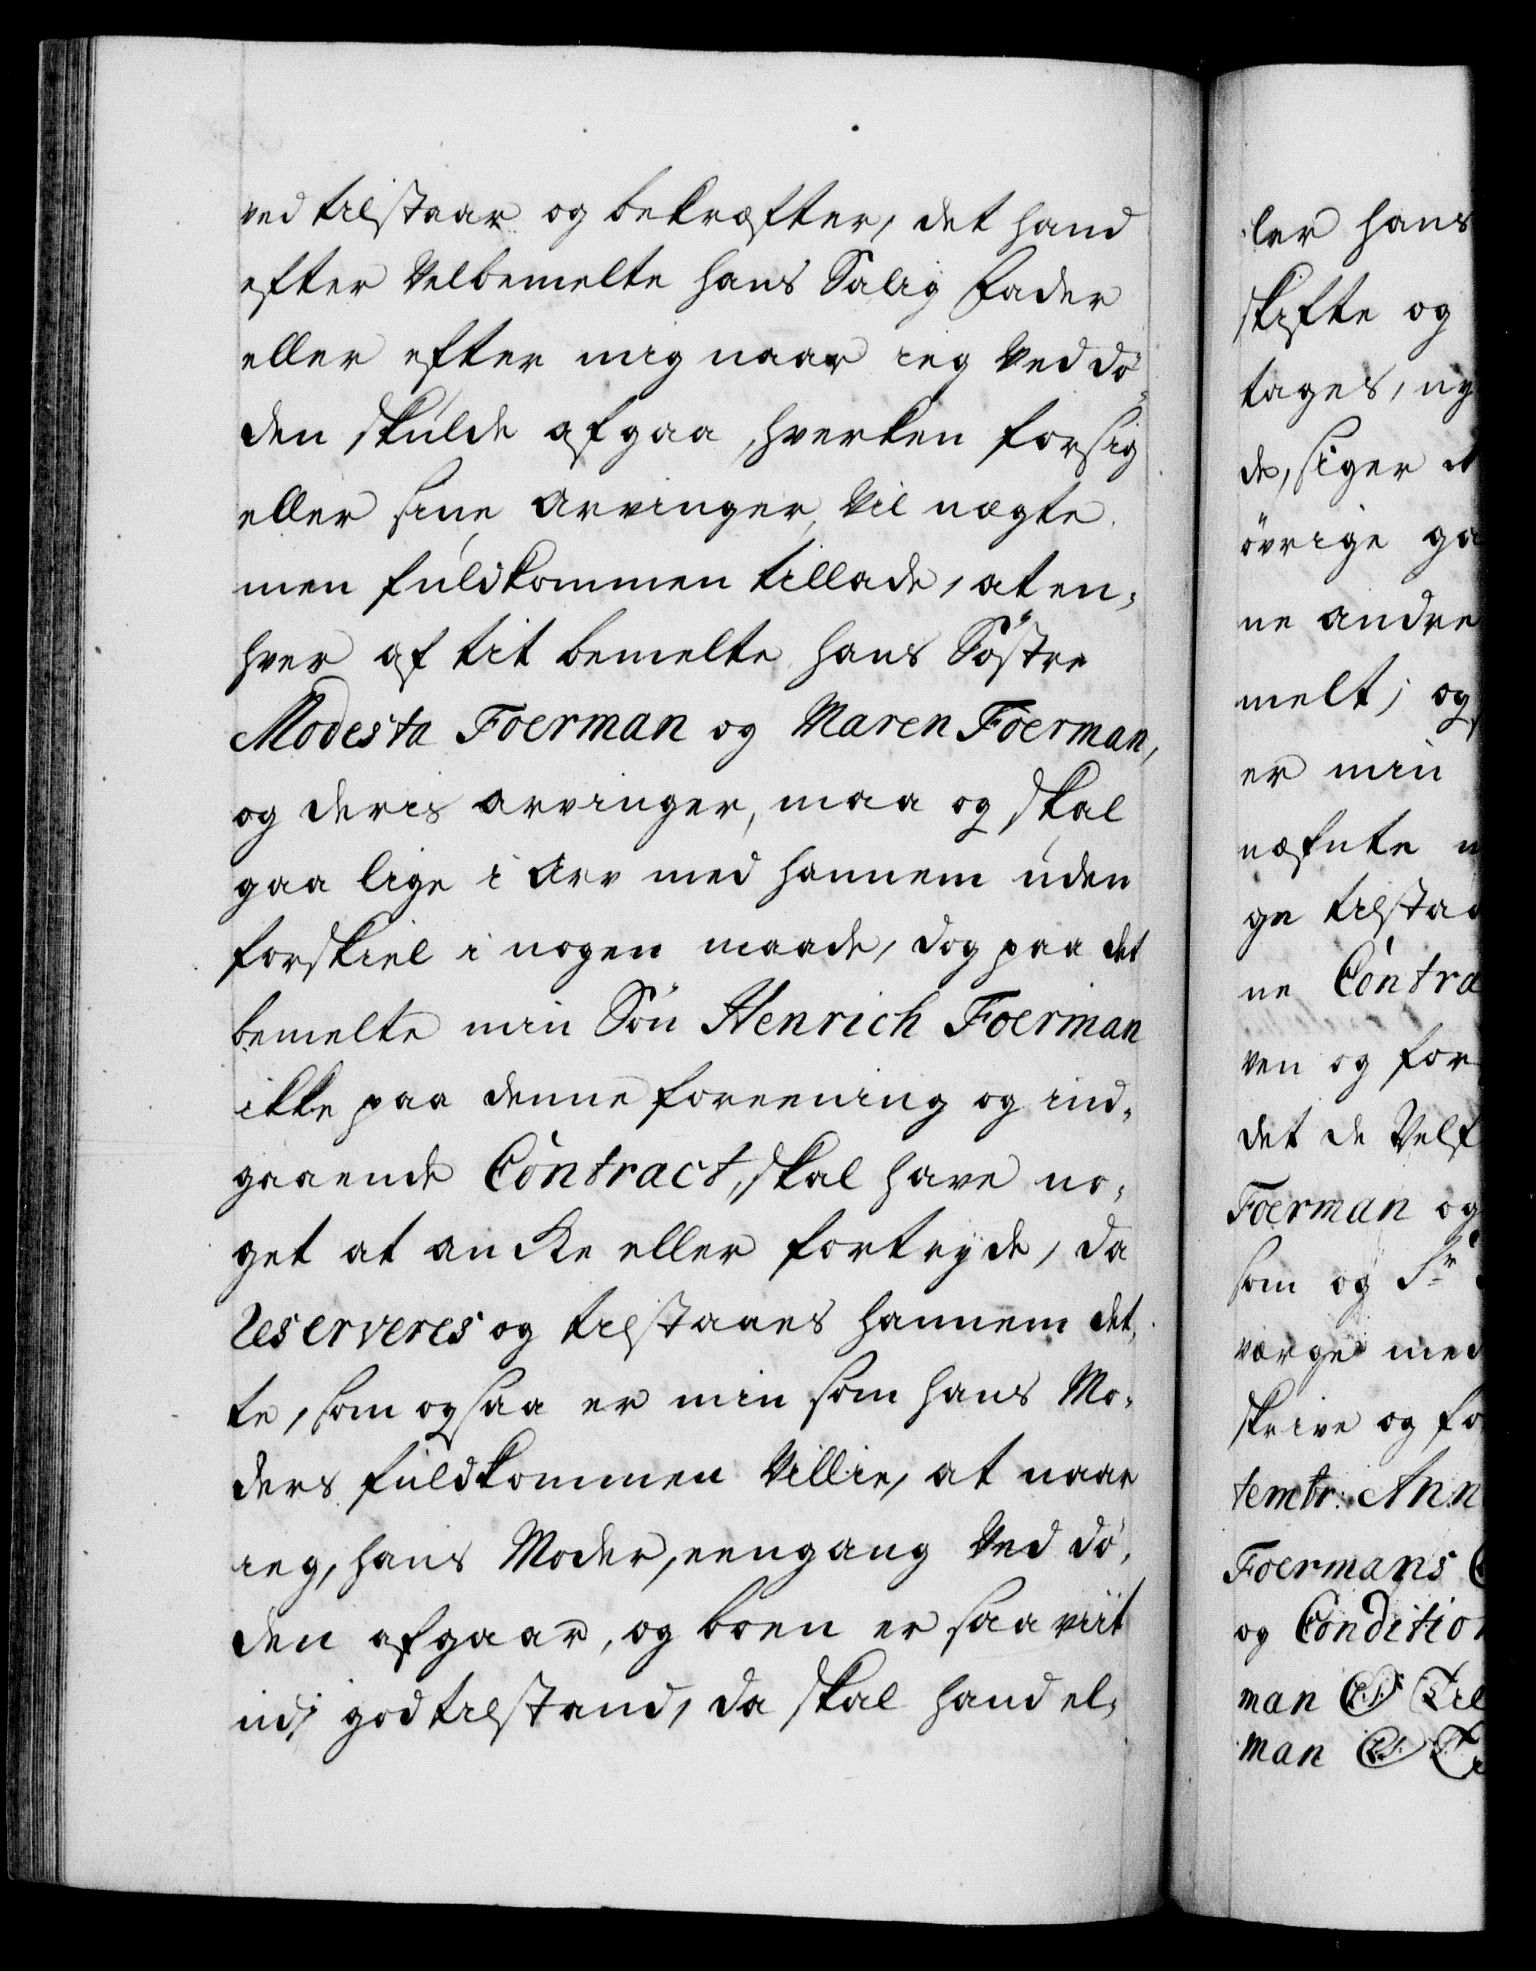 ved tilstaar og bekræfter, det hand
efter Velbemelte hans Salig Fader
eller efter mig naar ieg Ved dö-
den skulde afgaa, hverken for sig
eller sine Arvinger, Vil nægte,
men fuldkommen tillade, at en-
hver af tit bemelte hans Söstre
Modesta Foerman og Maren Foerman,
og deris arvinger, maa og skal
gaa lige i Arv med hannem uden
forskiel i nogen maade, dog paa det
bemelte min Sön Henrich Foerman
ikke paa denne foreening og ind-
gaaende Contract, skal have no-
get at ancke eller fortryde, da
Reserveres og tilstaaes hannem det-
te, som ogsaa er min som hans Mo-
ders fuldkommen Villie, at naar
ieg, hans Moder, eengang Ved dö-
den afgaar, og boen er saa viit
udi god tilstand, da skal hand el-
ler hans
skifte og
tages, ny
de, siger
övrige ga
ne andre
melt; og
er min
næfnte
ge tilstaa
ne Contra
ven og for
det de Velf
Foerman og
som og Sr
værge med
skrive og fo
tembr: Ann
Foermans
og Condition
man (L.S.) Til
man (L.S.)